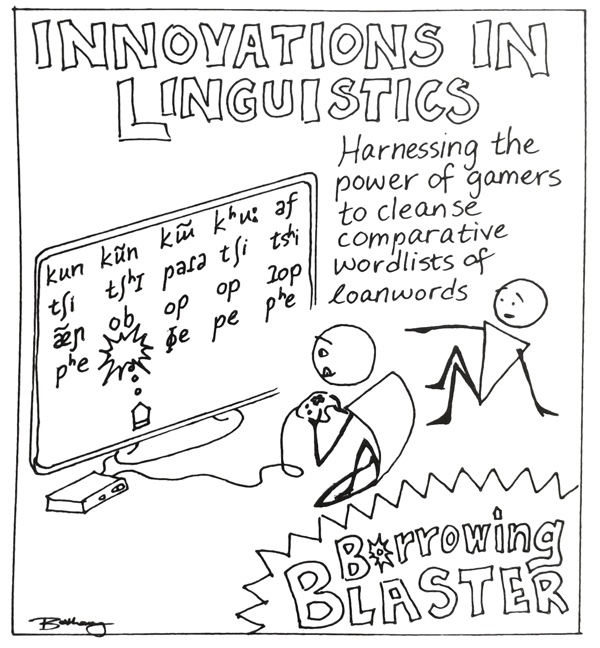 INNOVATIONS IN
LINGUISTICS
Harnessing the
power of gamers
to cleanse
comparative
wordlists of
loanwords
kun kũn kɯ̃ kʰuː
tʃi tʃʰɪ tʃi tsʰi
ob op op
pʰe ɸe pe pʰe
Borrowing
BLASTER